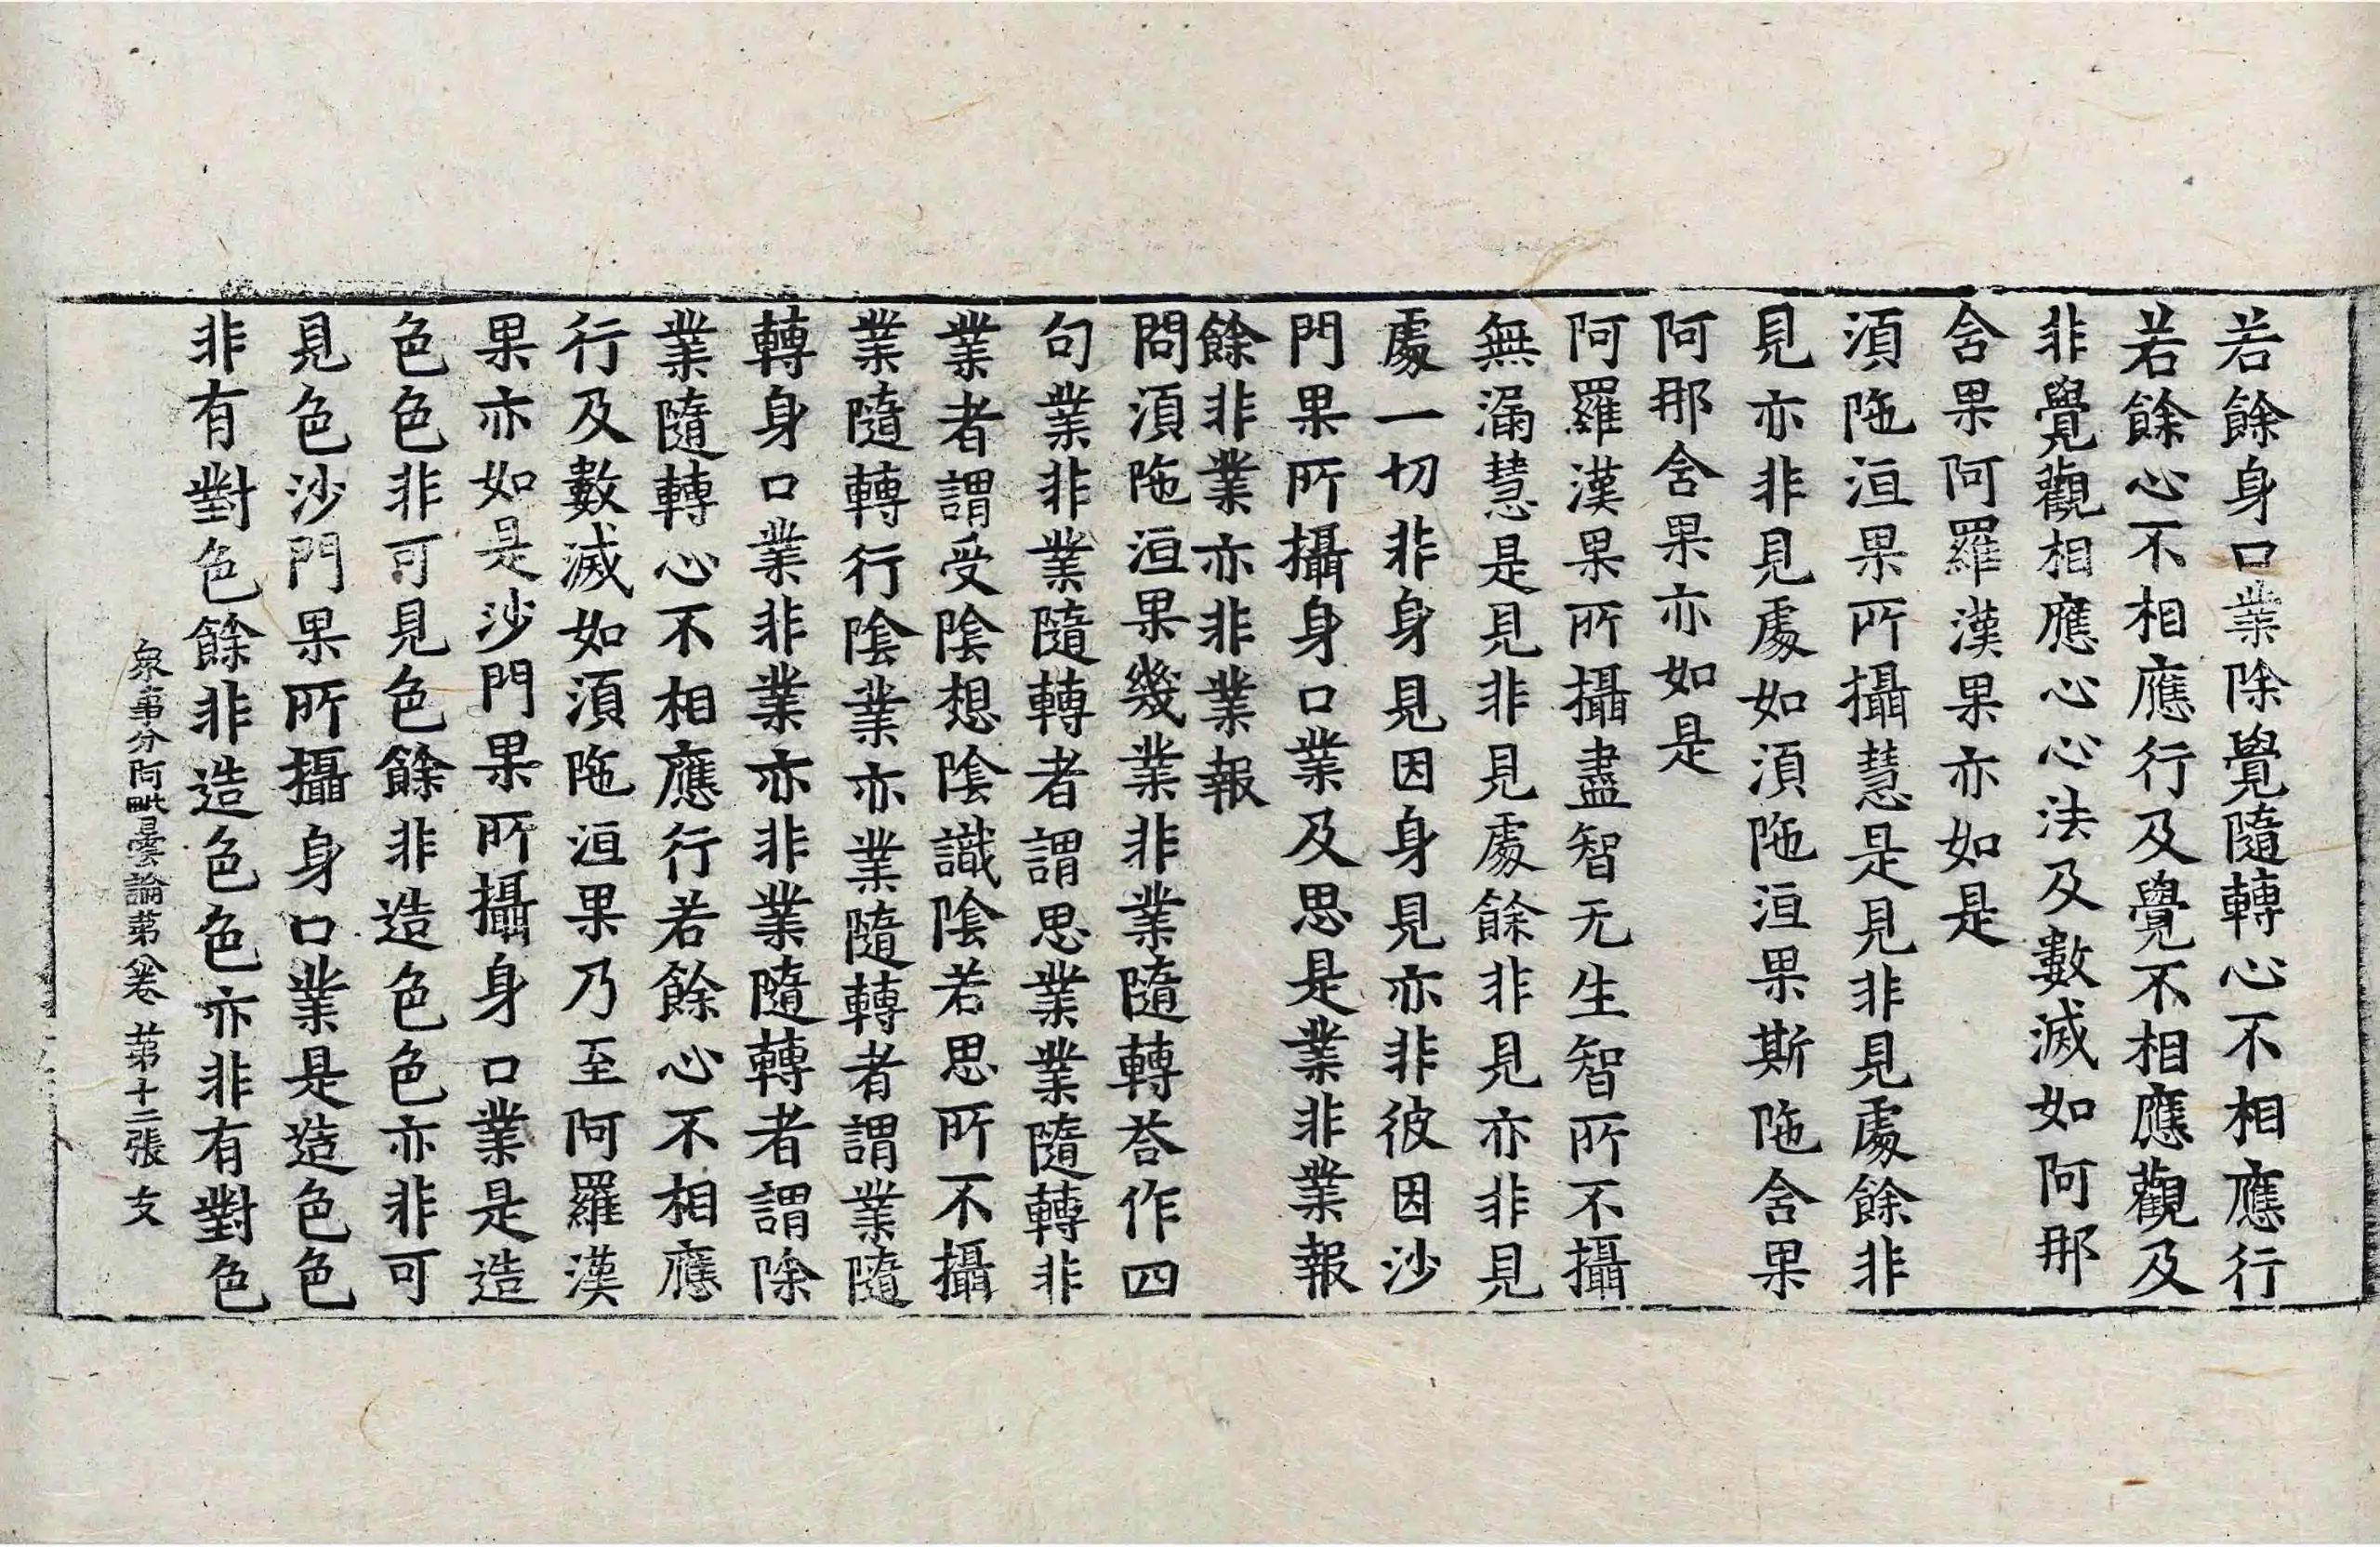 若餘身口業除覺隨轉心不相應行
若餘心不相應行及覺不相應觀及
非覺觀相應心心法及數滅如阿那
含果阿羅漢果亦如是
湏陁洹果所攝慧是見非見處餘非
見亦非見處如湏陁洹果斯陁含果
阿那含果亦如是
阿羅漢果所攝盡智无生智所不攝
無漏慧是見非見處餘非見亦非見
處一切非身見因身見亦非彼因沙
門果所攝身口業及思是業非業報
餘非業亦非業報
問湏陁洹果幾業非業隨轉荅作四
句業非業隨轉者謂思業業隨轉非
業者謂受陰想陰識陰若思所不攝
業隨轉行陰業亦業隨轉者謂業隨
轉身口業非業亦非業隨轉者謂除
業隨轉心不相應行若餘心不相應
行及數滅如湏陁洹果乃至阿羅漢
果亦如是沙門果所攝身口業是造
色色非可見色餘非造色色亦非可
見色沙門果所攝身口業是造色色
非有對色餘非造色色亦非有對色
衆事分阿毗曇論第八卷 第十二張 攴